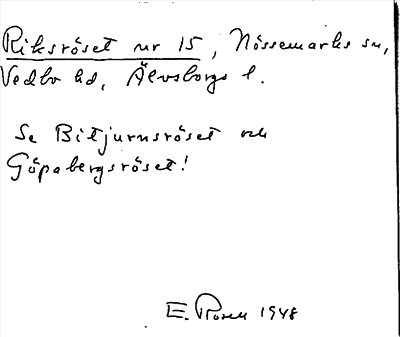 Riksröset nr 15, Nössemarks sn,
Vedbo hd, Älvsborgs l.
Se Bitjurnsröset och
Göpabergsröset!
E. Rosell 1948